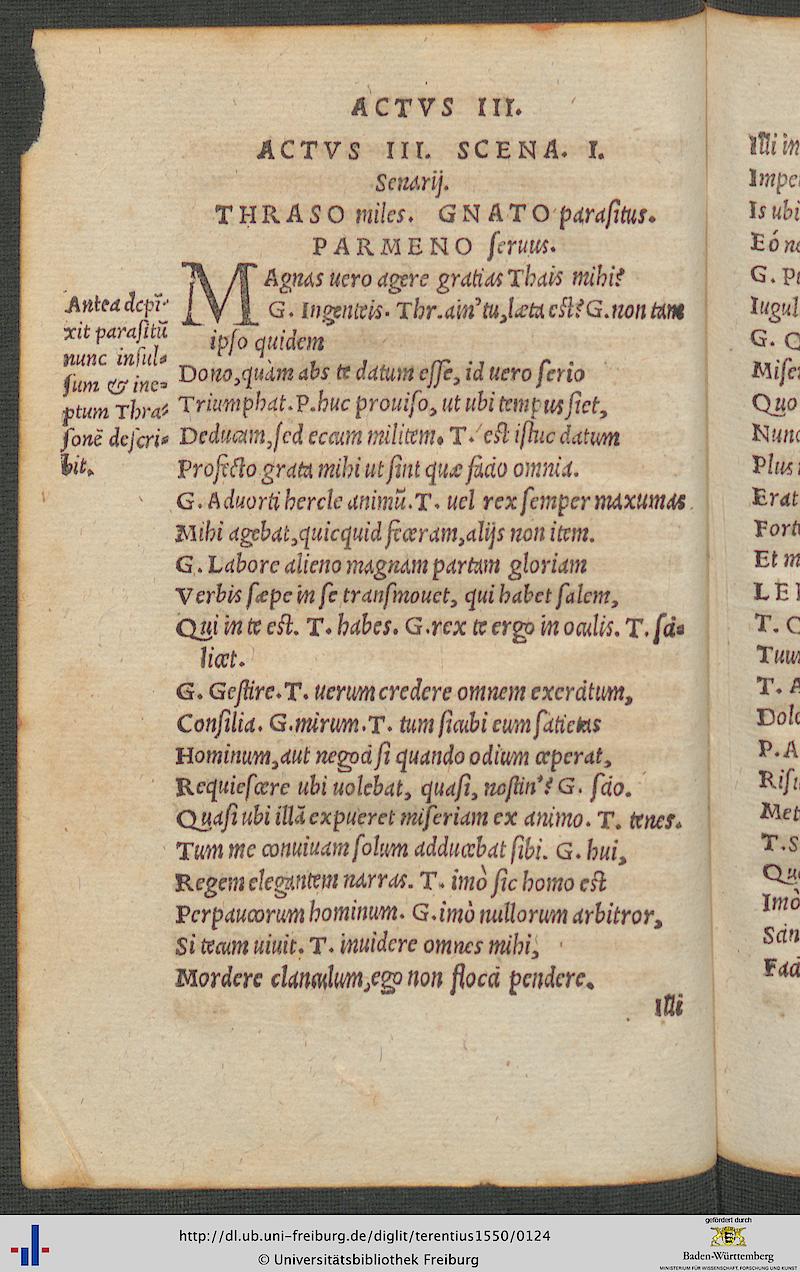 ACTVS III.
ACTVS III. SCENA. I.
Senarij.
THRASO miles. GNATO parasitus.
PARMENO seruus.
MAgnas uero agere gratias Thais mihi?
G. Ingenteis. Thr. ain' tu, læta est? G. non tam
ipso quidem
Dono, quàm abs te datum esse, id uero serio
Triumphat. P. huc prouiso, ut ubi tempus siet,
Deducam, sed eccum militem. T. est istuc datum
Profecto grata mihi ut sint quæ facio omnia.
G. Aduorti hercle animū. T. uel rex semper maxumas
Mihi agebat, quicquid feceram, alijs non item.
G. Labore alieno magnam partam gloriam
Verbis sæpe in se transmouet, qui habet salem,
Qui in te est. T. habes. G. rex te ergo in oculis. T. sci=
licet.
G. Gestire. T. uerum credere omnem exercitum,
Consilia. G. mirum. T. tum sicubi eum satietas
Hominum, aut negoci si quando odium ceperat,
Requiescere ubi uolebat, quasi, nostin'? G. scio.
Quasi ubi illā expueret miseriam ex animo. T. tenes.
Tum me conuiuam solum adducebat sibi. G. hui,
Regem elegantem narras. T. imò sic homo est
Perpaucorum hominum. G. imò nullorum arbitror,
Si tecum uiuit. T. inuidere omnes mihi,
Mordere clanculum, ego non flocci pendere.
Illi
Antea depī=
xit parasitū
nunc insul=
sum & ine=
ptum Thra=
sonē descri=
bit.
Illi in
Is ubi
G. P
Iugul
G. Q
Mise
Quo
Nunc
Plus
Erat
Fort
Et m
LE
T. C
Tuu
T. A
Dolo
P. A
Risu
Met
T. S
Qu
Imò
San
Faci
http://dl.ub.uni-freiburg.de/diglit/terentius1550/0124
© Universitätsbibliothek Freiburg
gefördert durch
Baden-Württemberg
MINISTERIUM FÜR WISSENSCHAFT, FORSCHUNG UND KUNST